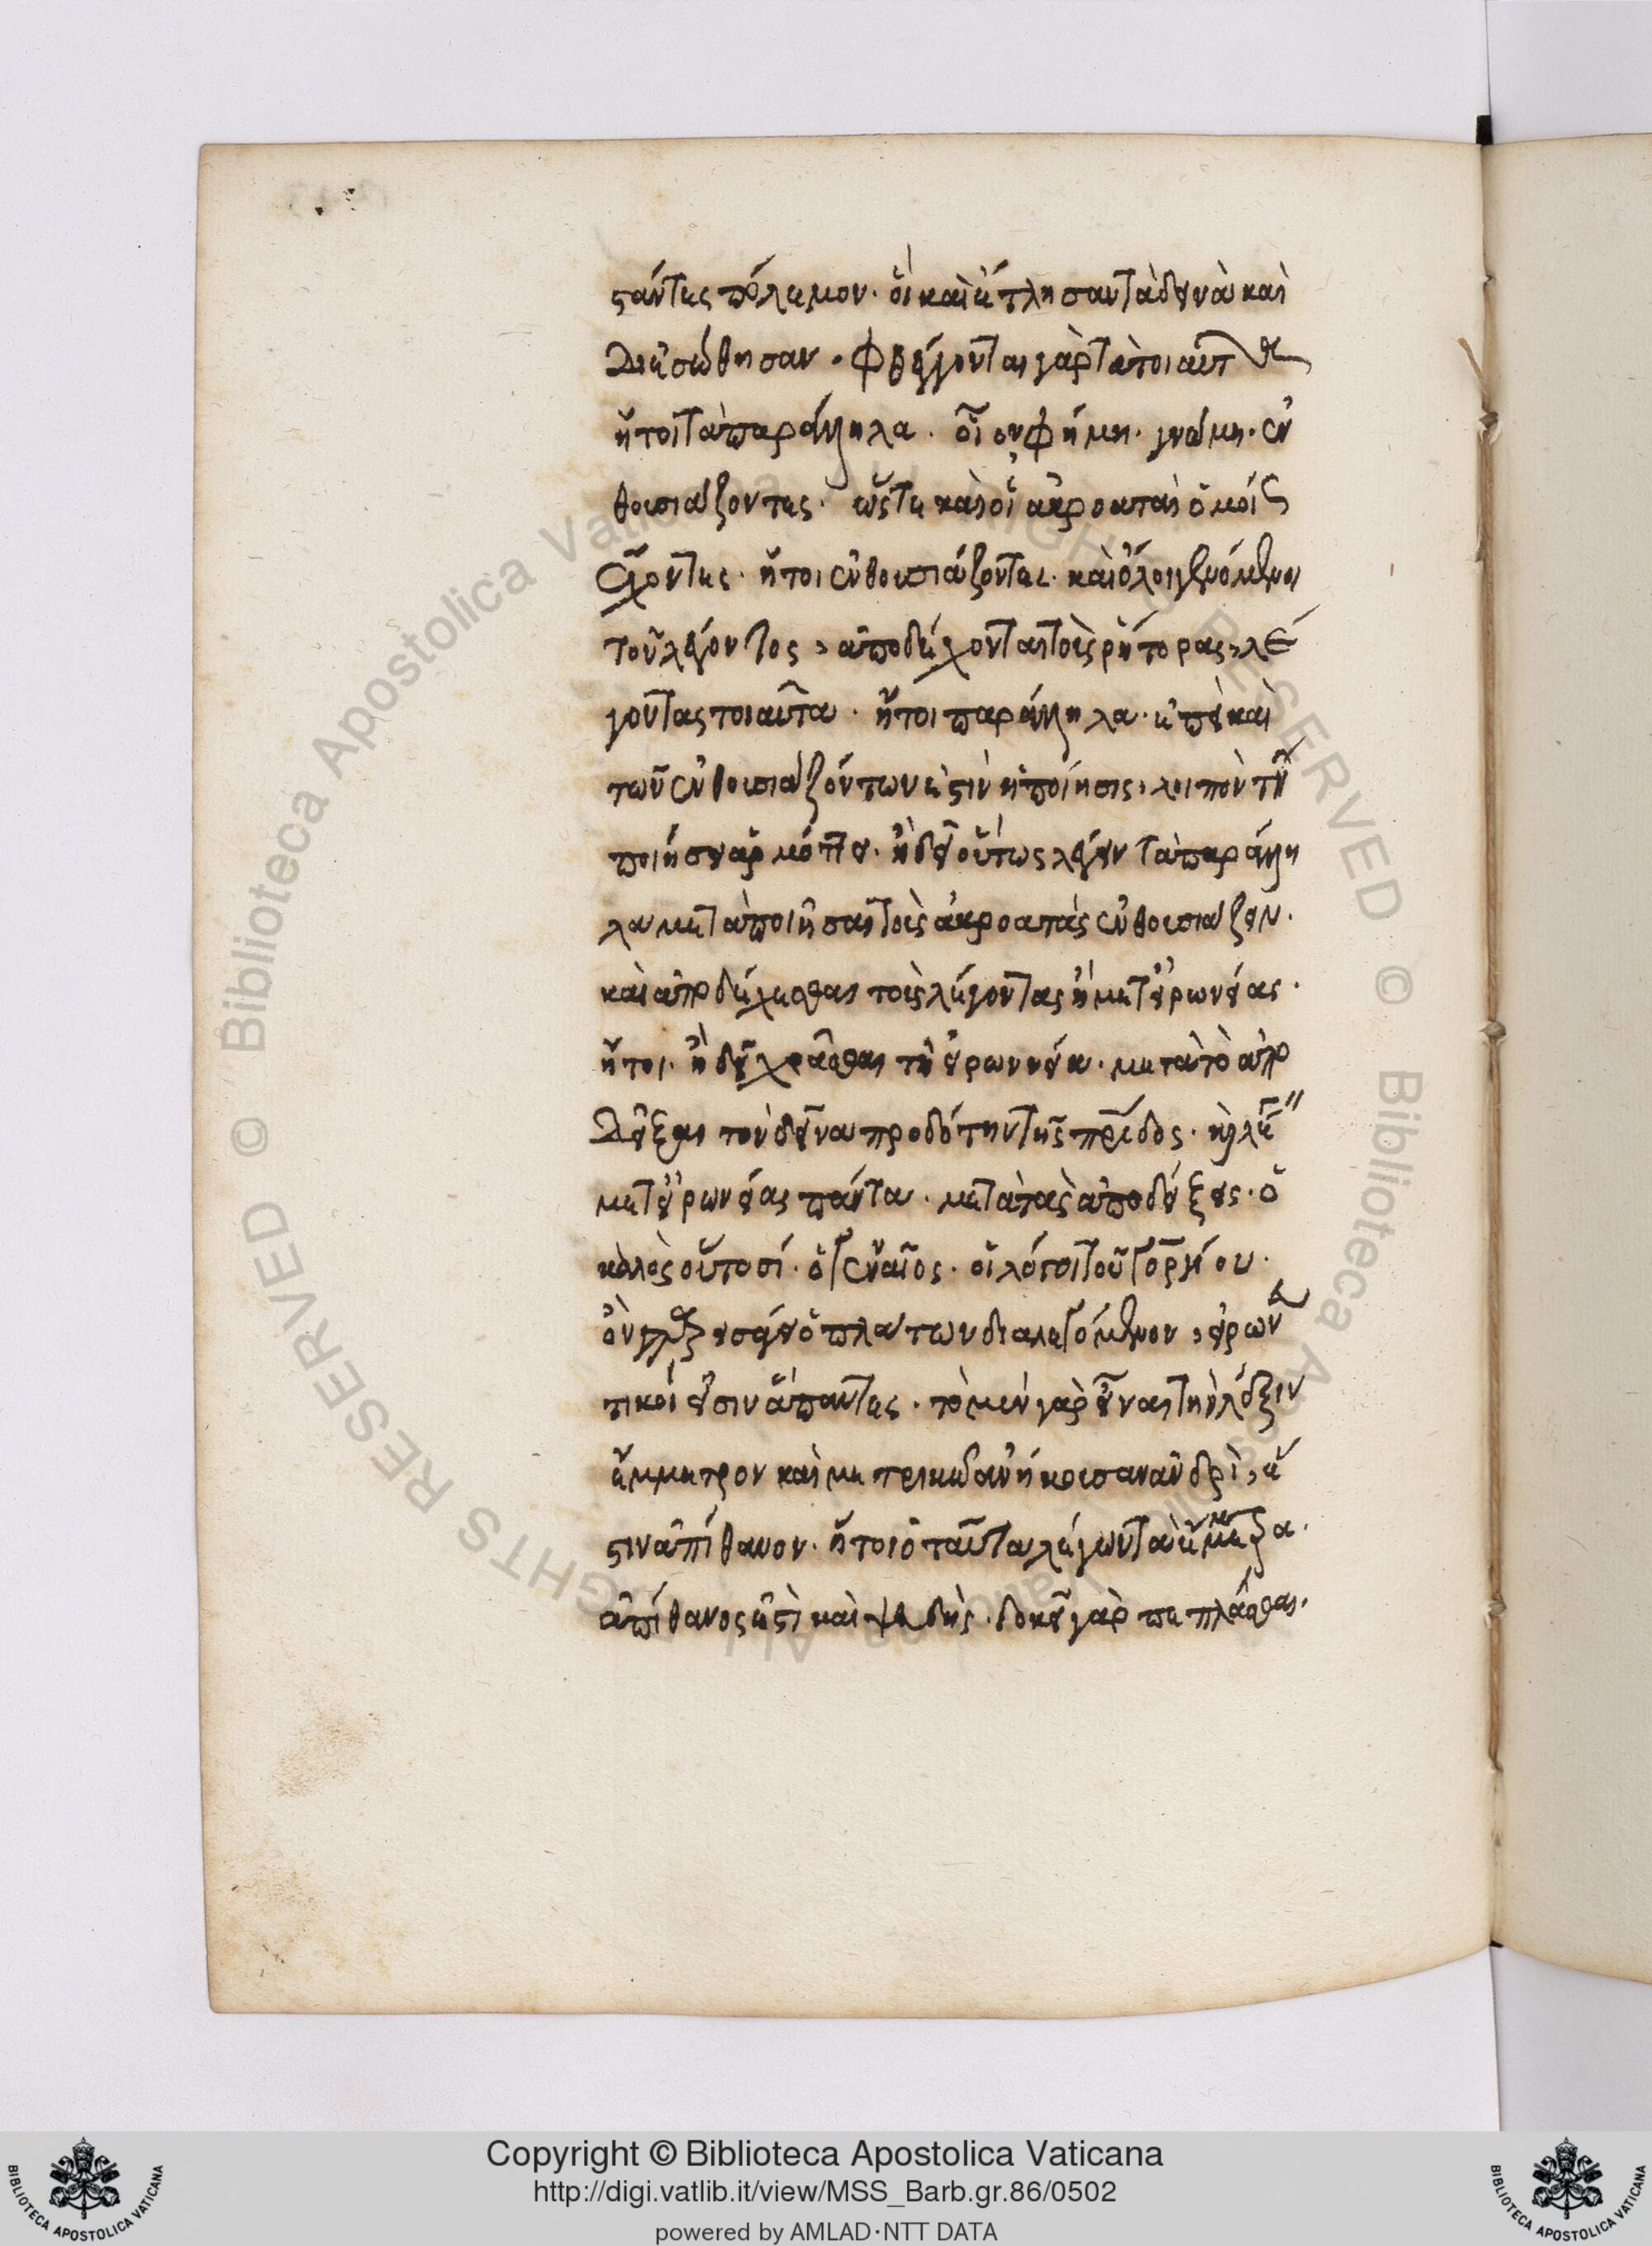 σάντες πόλεμον. οἳ καὶ ἔτλησαν τὰ δεινὰ καὶ
διεσώθησαν. φθέγγονται γὰρ τὰ τοιαῦτα
ἤτοι τὰ παράλληλα. οἷον φήμη. γνώμη. ἐν
θουσιάζοντες. ὥστε καὶ οἱ ἀκροαταὶ ὁμοίως
ἔχοντες. ἤτοι ἐνθουσιάζοντες. καὶ ὅλοι γενόμενοι
τοῦ λέγοντος, ἀποδέχονται τοὺς ῥήτορας, λέ
γοντας τοιαῦτα. ἤτοι παράλληλα. ἐπεὶ καὶ
τῶν ἐνθουσιαζόντων ἐστὶν ἡ ποίησις, λοιπὸν τῇ
ποιήσει ἁρμόττει. ἢ δεῖ οὕτως λέγειν τὰ παράλλη
λα μετὰ ποιῆσαι τοὺς ἀκροατὰς ἐνθουσιάζειν.
καὶ ἀποδέχεσθαι τοὺς λέγοντας ἢ μετ' εἰρωνείας.
ἤτοι. ἢ δεῖ χρᾶσθαι τῇ εἰρωνεία. μετὰ τὸ ἀπο
δεῖξαι τὸν δεῖνα προδότην τῆς πρίδος.
μετ' εἰρωνείας πάντα. μετὰ τὰς ἀποδείξεις. ὁ
καλὸς οὑτοσί. ὁ γενναῖος. οἱ λόγοι τοῦ γοργίου.
ὃν εἰσάγει ὁ πλάτων διαλεγόμενον, εἰρων
τικοί εἰσιν ἅπαντες. τὸ μὲν γὰρ εἶναι τὴν λέξιν
ἔμμετρον καὶ μετρικῶς ἀνήκουσαν ἀνδρὶ, ἐ
στιν ἀπίθανον. ἤτοι ὁ ταῦτα λέγων τὰ ἔμμετρα.
ἀπίθανος ἐστὶ καὶ ψευδής. δοκεῖ γὰρ πεπλάσθαι.
Copyright © Biblioteca Apostolica Vaticana
http://digi.vatlib.it/view/MSS_Barb.gr.86/0502
powered by AMLAD·NTT DATA